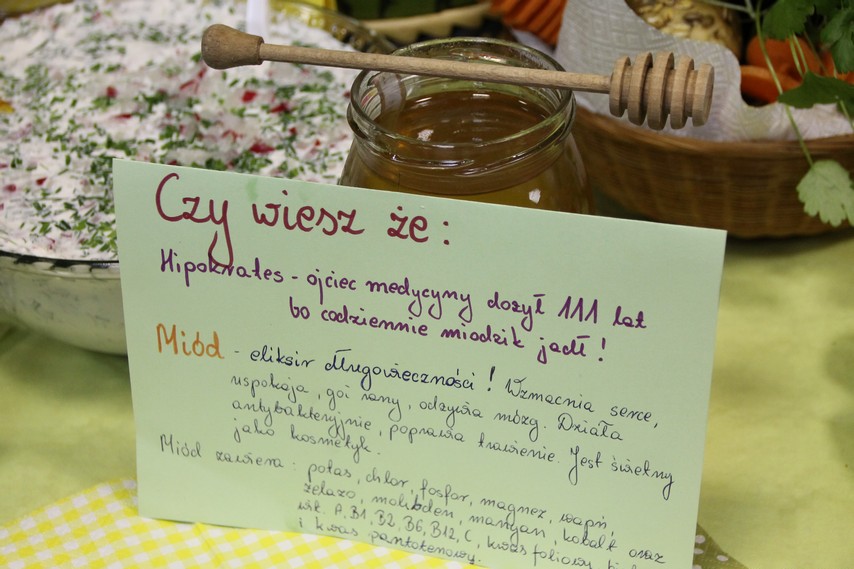 Czy wiesz że:
Hipokrates - ojciec medycyny dożył 111 lat
bo codziennie miodzik jadł!
Miód - eliksir długowieczności! Wzmacnia serce,
uspokaja, goi rany, odżywia mózg. Działa
antybakteryjnie, poprawia trawienie. Jest świetny
jako kosmetyk.
Miód zawiera: potas, chlor, fosfor, magnez, wapń,
żelazo, molibden, mangan, kobalt oraz
wit. A, B1, B2, B6, B12, C, kwas foliowy,
i kwas pantotenowy.